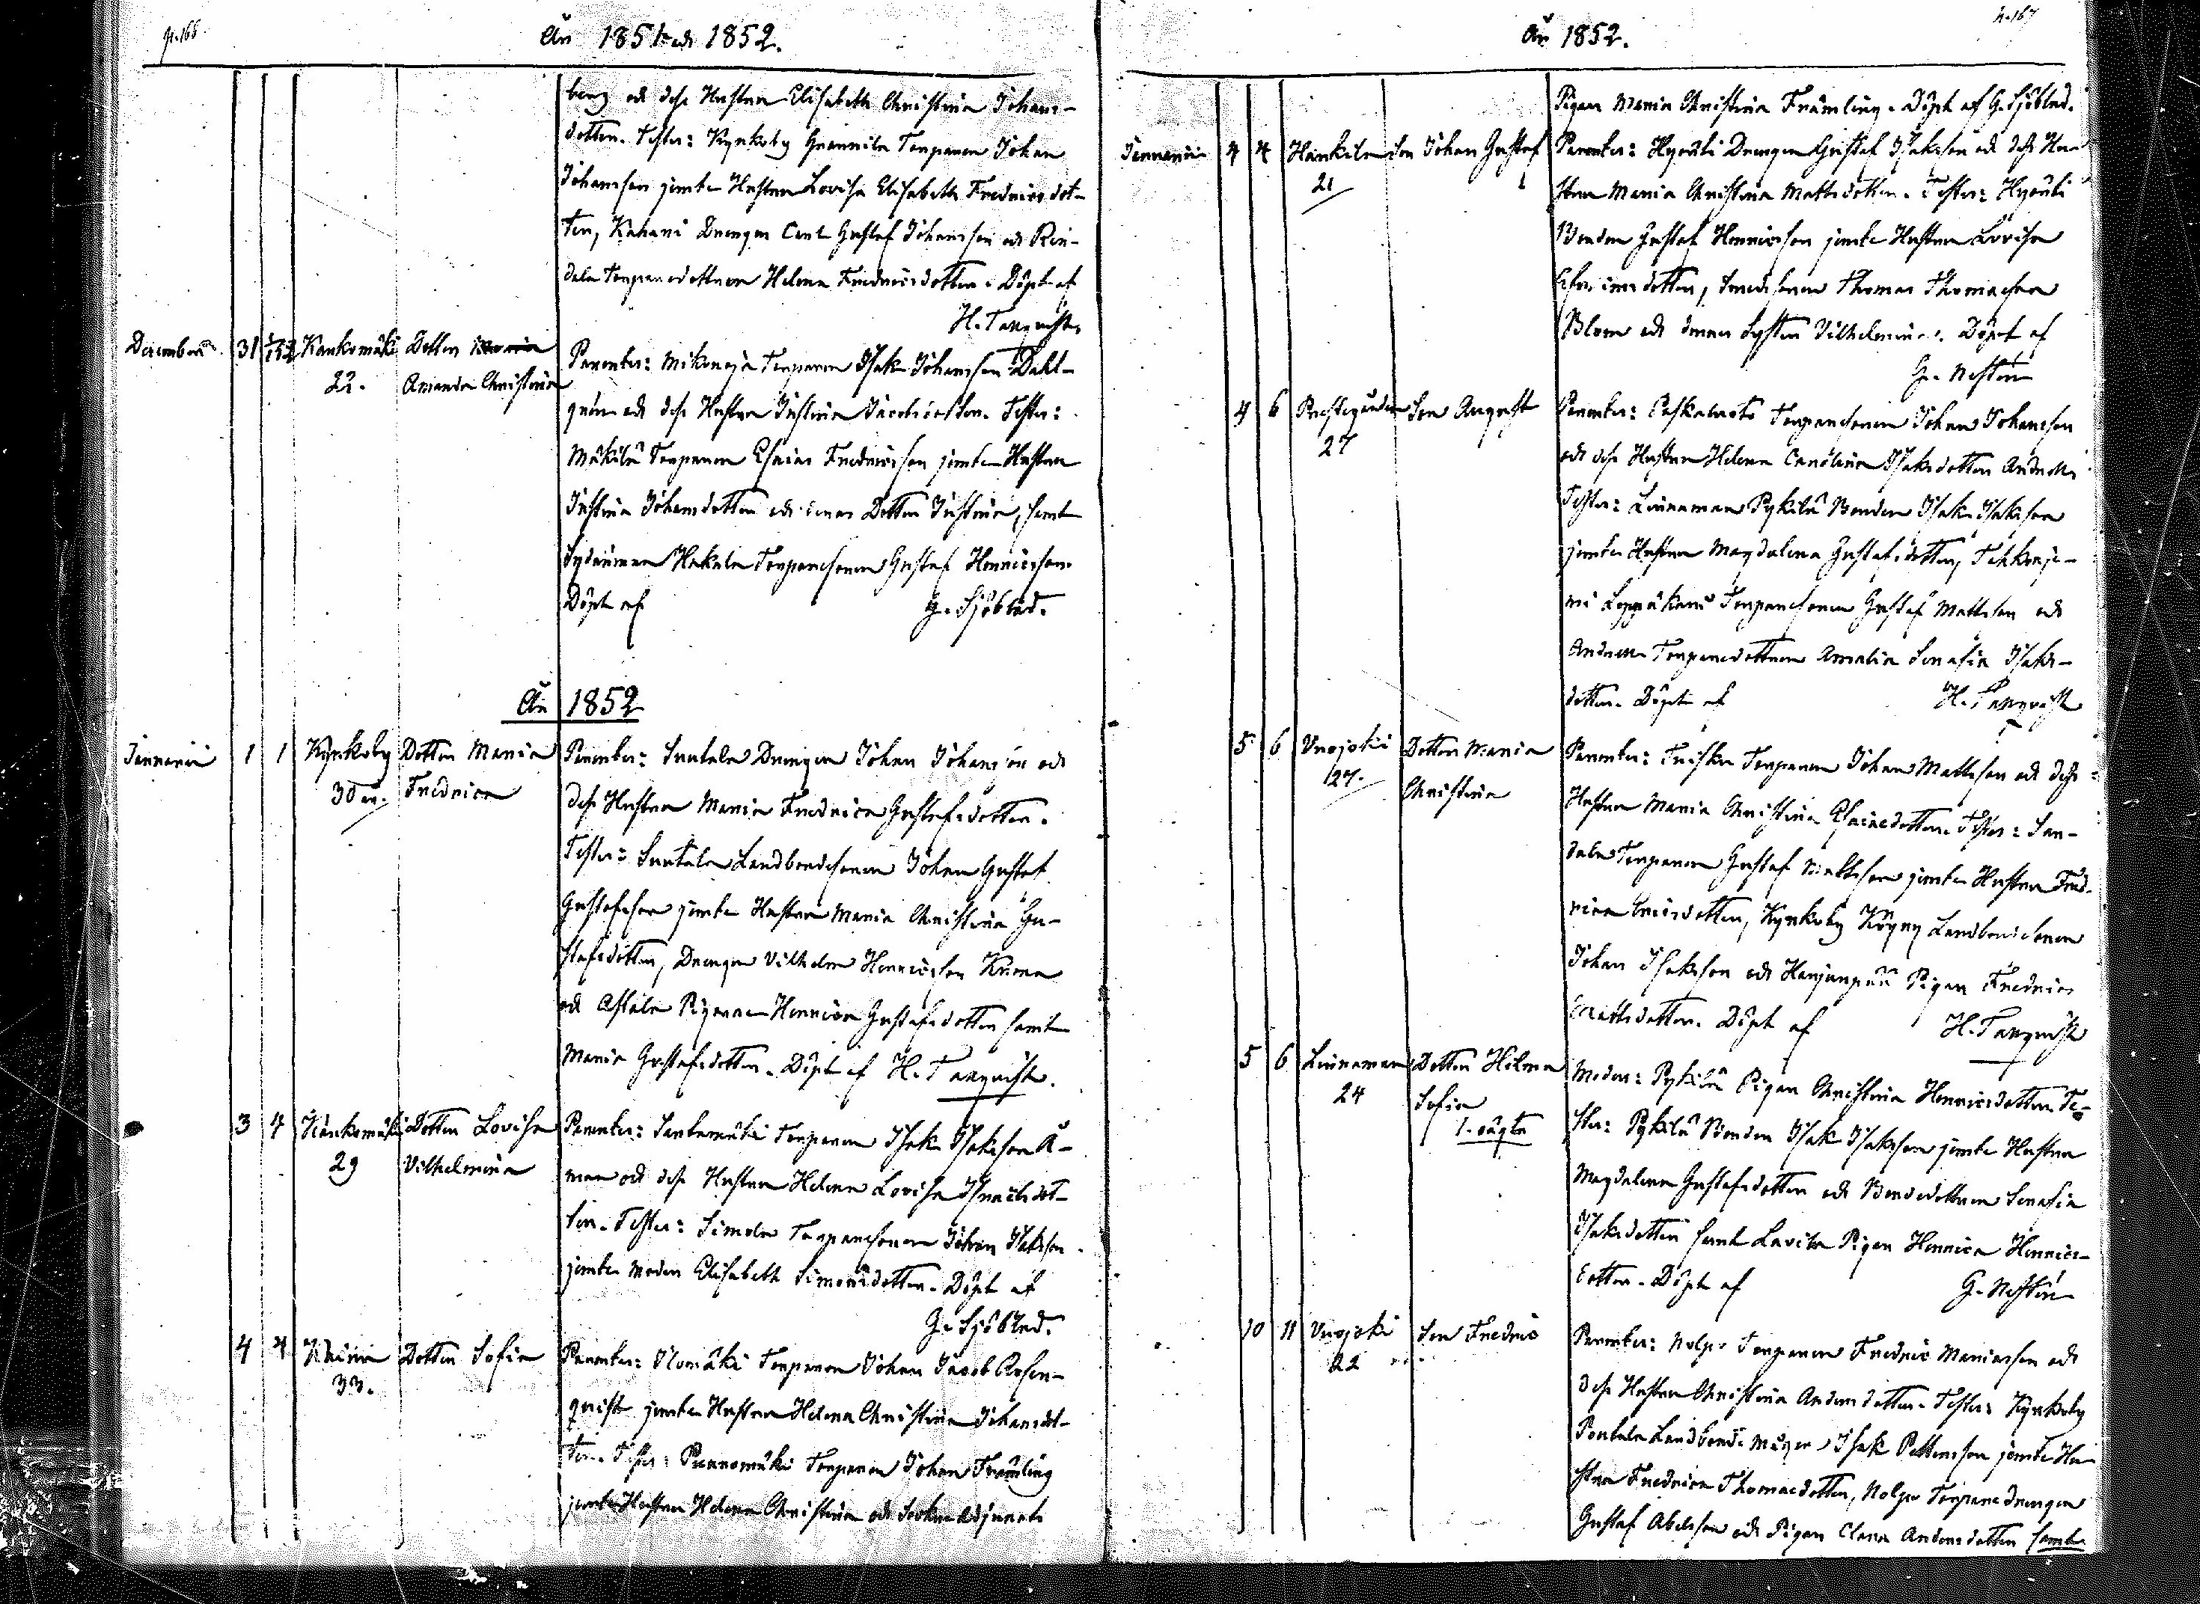 p. 166
År 1851 och 1852.
berg och dess Hustru Elisabeth Christina Johans-
dotter. Testes: Kyrkoby Torparen Johan
Johansson jemte Hustrun Lovisa Elisabeth Fredricsdot-
ter, Drengen Carl Gustaf Johansson och
Torparedottren Helena Fredricsdotter. Döpt af
H. Tanqvist.
December 31 Kankomäki Dotter
22. Amanda Christina
Parentes: Torparen Isak Johansson Dahl-
och dess Hustru Justina Jacobsdotter. Testes:
Mäkilä Torparen Esaias Fredricsson jemte Hustrun
Justina Johansdotter och deras Dotter Justina, samt
Hakala Torparesonen Gustaf Henricsson.
Döpt af G. Sjöblad.
År 1852
Januarii 1 1 Kyrkoby Dotter Maria
30 Fredrica
Parentes: Suutala Drengen Johan Johansson och
dess Hustru Maria Fredrica Gustafsdotter.
Testes: Suutala Landbondesonen Johan Gustaf
Gustafsson jemte Hustrun Maria Christina Gu-
stafsdotter, Drengen Vilhelm Henricsson
och Astala Pigorne Henrica Gustafsdotter samt
Maria Gustafsdotter. Döpt af H. Tanqvist.
3 4 Kankomäki Dotter Lovisa
29 Vilhelmina
Parentes: Santamäki Torparen Isak Isaksson Å-
man och dess Hustru Helena Lovisa Israelsdot-
ter. Testes: Simola Torparesonen Johan Isaksson
jemte Modren Elisabeth Simonsdotter. Döpt af
G. Sjöblad.
4 4 Dotter Sofia
33.
Parentes: Torparen Johan Jacob Rosen-
qvist jemte Hustrun Helena Christina Johansdot-
ter. Testes: Torparen Johan Främling
jemte Hustrun Helena Christina och Sockne Adjuncts
p. 167
År 1852.
Pigan Maria Christina Främling. Döpt af G. Sjöblad.
Januarii 4 4 Hankila Son Johan Gustaf
21
Parentes: Drengen Gustaf Isaksson och dess Hu-
stru Maria Christina Mattsdotter. Testes:
Bonden Gustaf Henricsson jemte Hustrun Lovisa
Efraimsdotter, Smedssonen Thomas Thomasson
Blom och dennes Syster Vilhelmina. Döpt af
G. Nestor
4 6 Son August
27
Parentes: Torparesonen Johan Johansson
och dess Hustru Helena Carolina Isaksdotter
Testes: Linnamaa Pykilä Bonden Isak Isaksson
jemte Hustrun Magdalena Gustafsdotter,
Torparesonen Gustaf Mattsson och
Torparedottren Amalia Serafia Isaks-
dotter. Döpt af H. Tanqvist
5 6 Vuojoki Dotter Maria
27. Christina
Parentes: Torparen Johan Mattsson och dess
Hustru Maria Christina Esaiaedotter. Testes:
Torparen Gustaf Mattsson jemte Hustrun Fred-
rica Ericsdotter, Kyrkoby Landbondesonen
Johan Isaksson och Harjunpää Pigan Fredrica
Mattsdotter. Döpt af H. Tanqvist
5 6 Linnamaa Dotter Hilma
24 Sofia
1. oägta
Moder: Pykilä Pigan Christina Henricsdotter. Te-
stes: Pykilä Bonden Isak Isaksson jemte Hustrun
Magdalena Gustafsdotter och Bondedottren Serafia
Isaksdotter samt Lavila Pigan Henrica Henrics-
dotter. Döpt af G. Nestor
10 11 Vuojoki Son Fredric
22
Parentes: Torparen Fredric Mariasson och
dess Hustru Christina Andersdotter. Testes: Kyrkoby
Pentala Landbonde Mågen Isak Pettersson jemte Hu-
strun Fredrica Thomasdotter, Torparedrengen
Gustaf Abelsson och Pigan Clara Andersdotter samt